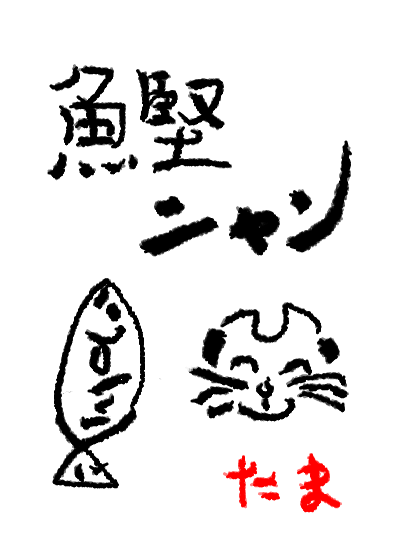 鰹
ニャン
たま